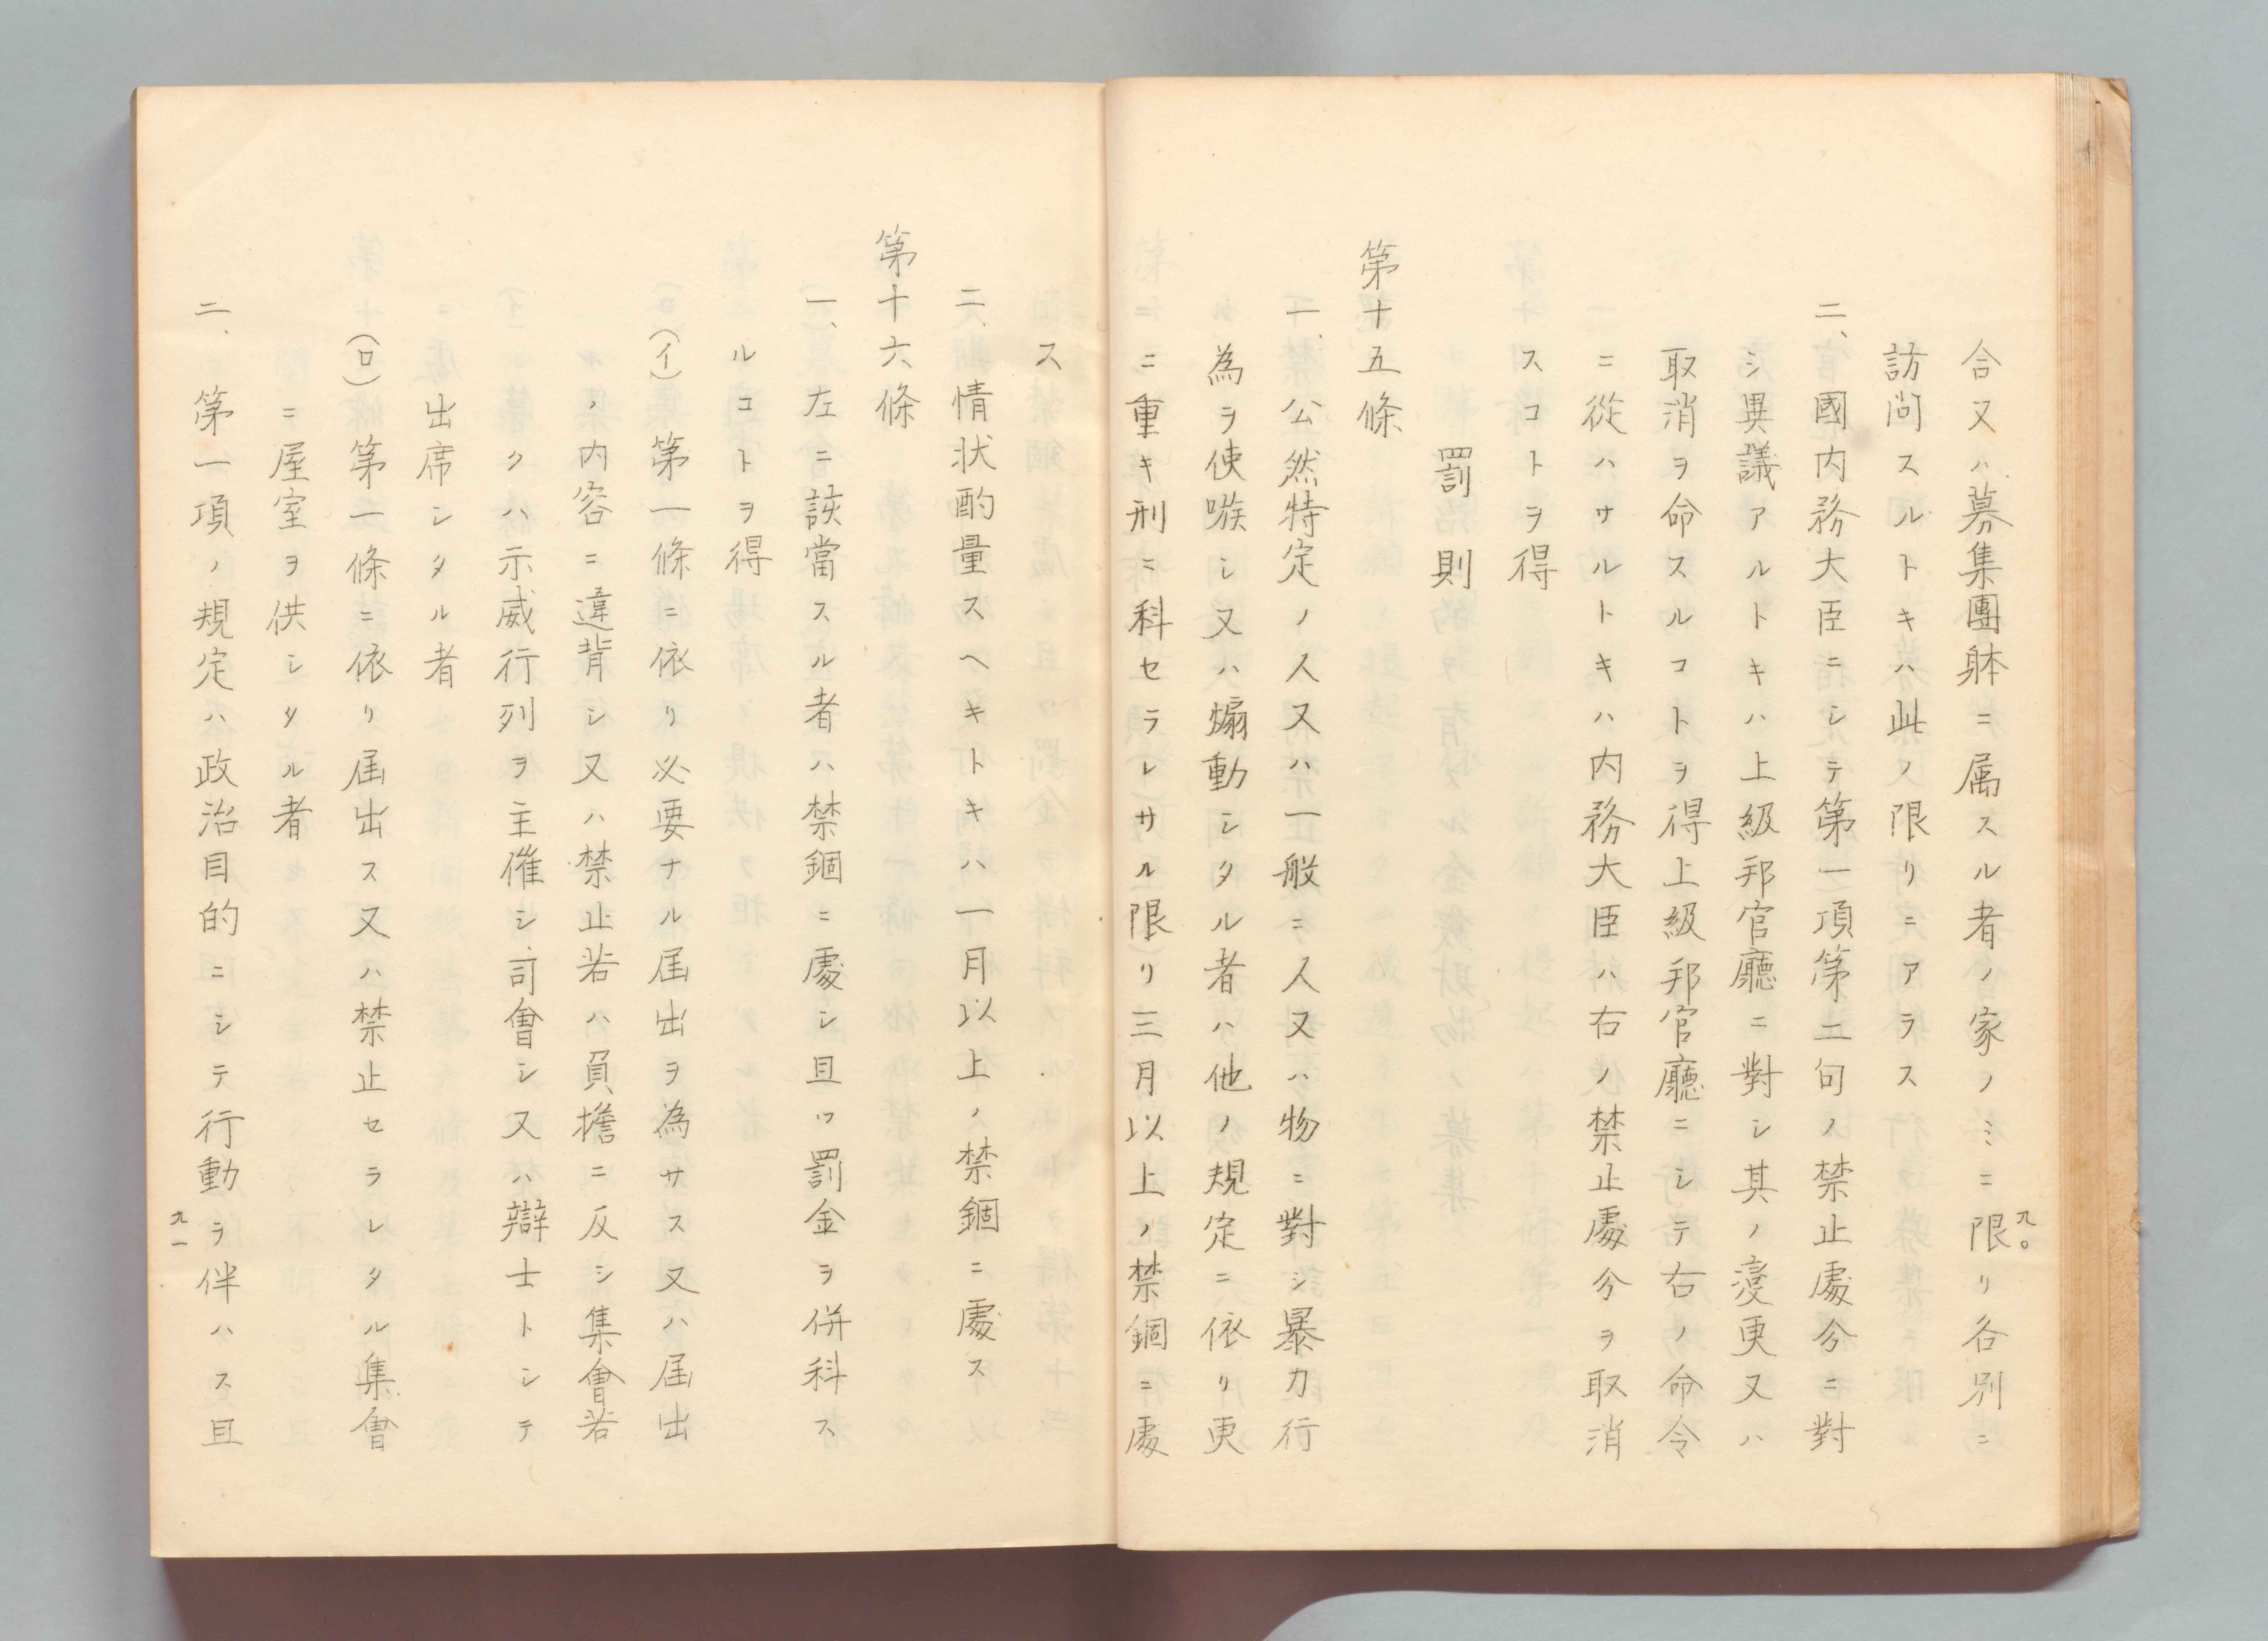 合又ハ募集團躰ニ属スル者ノ家ノミニ限リ各別ニ
訪问スルトキハ此ノ限リニアラス
二、國内務大臣ニシテ第一項第二句ノ禁止處分ニ對
シ異議アルトキハ上級邦官廳ニ對シ其ノ変更又ハ
取消ヲ命スルコトヲ得上級邦官廳ニシテ右ノ命令
ニ從ハサルトキハ内務大臣ハ右ノ禁止處分ヲ取消
スコトヲ得
罰則
第十五條
一、公然特定ノ人又ハ一般ニ人又ハ物ニ對シ暴力行
為ヲ使嗾シ又ハ煽動シタル者ハ他ノ規定ニ依リ更
ニ重キ刑ニ科セラレサル限リ三月以上ノ禁錮ニ處
九〇
ス
二、情状酌量スヘキトキハ一月以上ノ禁錮ニ處ス
第十六條
一、左ニ該當スル者ハ禁錮ニ處シ且ツ罰金ヲ併科ス
ルコトヲ得
(イ)第一條ニ依リ必要ナル届出ヲ為サス又ハ届出
ノ内容ニ違背シ又ハ禁止若ハ負擔ニ反シ集會若
クハ示威行列ヲ主催シ司會シ又ハ辯士トシテ
出席シタル者
(ロ)第一條ニ依リ届出ス又ハ禁止セラレタル集會
ニ屋室ヲ供シタル者
二、第一項ノ規定ハ政治目的ニシテ行動ヲ伴ハス且
九一